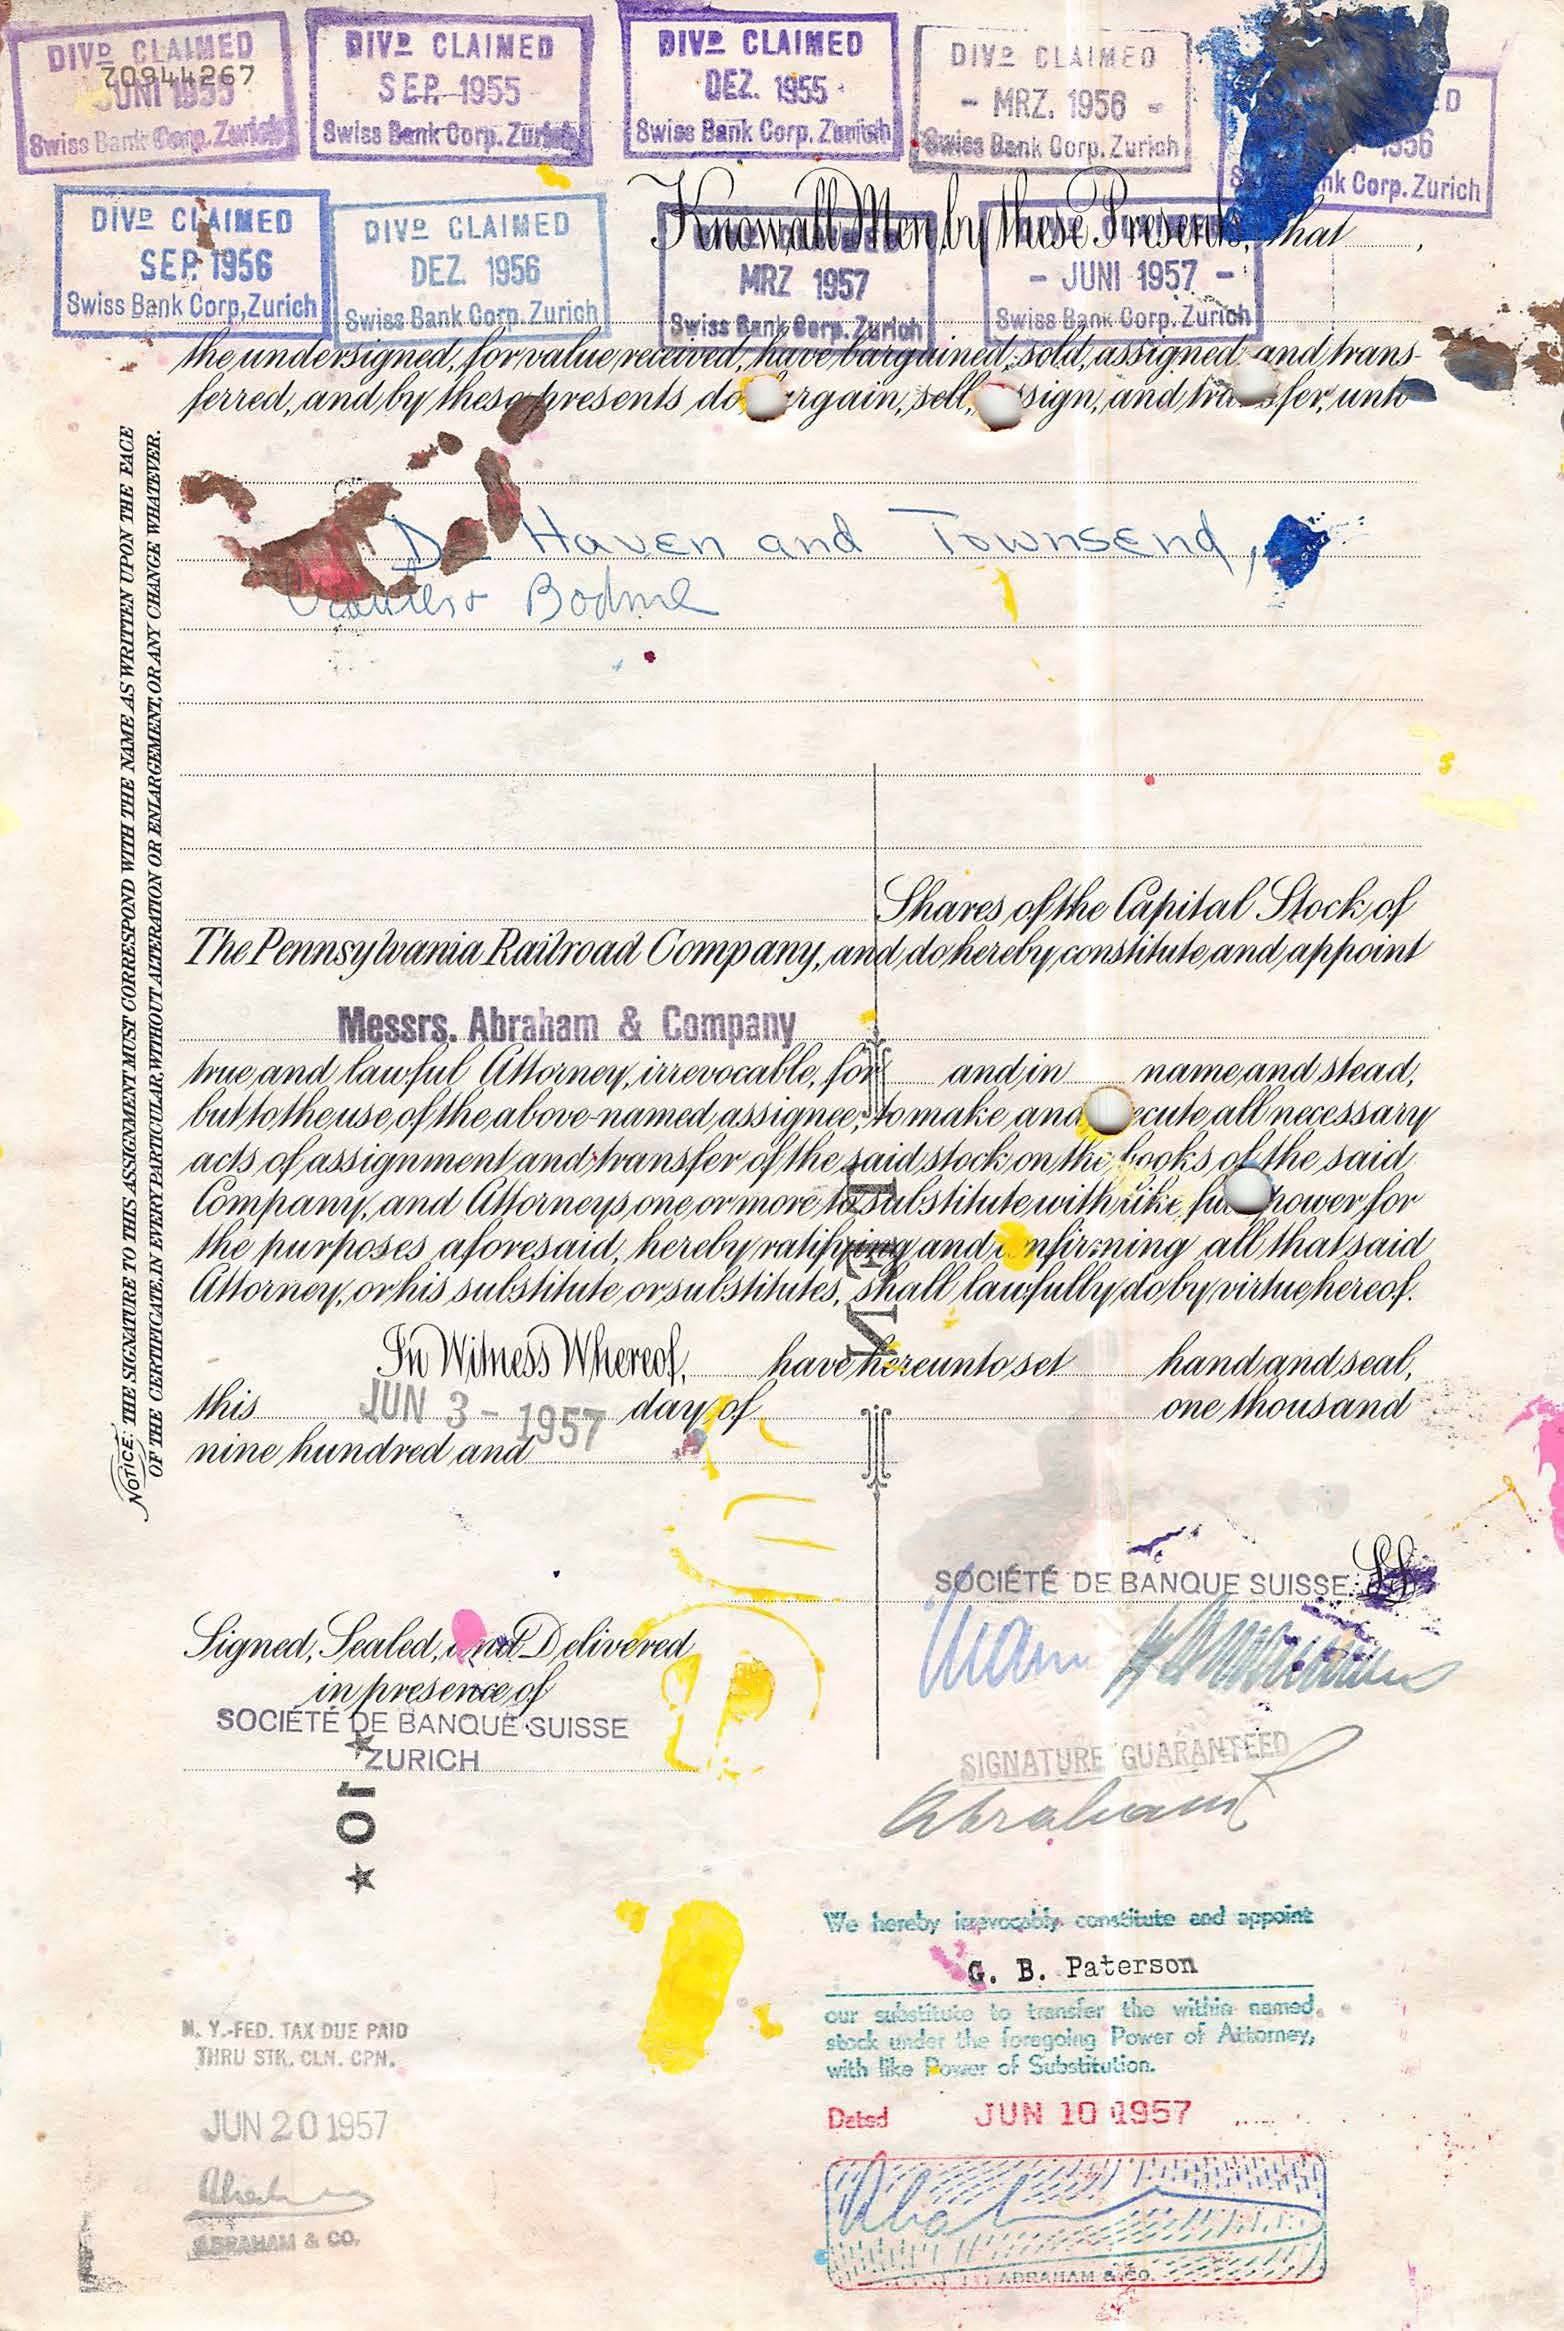 DIVD CLAIMED
70944267
JUNI 1955
Swiss Bank Corp. Zurich
DIVD CLAIMED
SEP. 1955
Swiss Bank Corp. Zurich
DIVD CLAIMED
DEZ. 1955
Swiss Bank Corp. Zurich
DIVD CLAIMED
- MRZ. 1956 -
Swiss Bank Corp. Zurich
D
1956
nk Corp. Zurich
DIVD CLAIMED
SEP. 1956
Swiss Bank Corp, Zurich
DIVD CLAIMED
DEZ. 1956
Swiss Bank Corp. Zurich
MRZ 1957
Swiss Bank Corp. Zurich
- JUNI 1957 -
Swiss Bank Corp. Zurich
Know all Men by these Presents, that
the undersigned, for value received, have bargained, sold, assigned and trans-
ferred, and by these presents do bargain, sell, assign, and transfer, unto
De Haven and Townsend,
Bodine
Shares of the Capital Stock of
The Pennsylvania Railroad Company, and do hereby constitute and appoint
Messrs. Abraham & Company
true and lawful Attorney, irrevocable, for and in name and stead,
but to the use of the above-named assignee, to make and execute all necessary
acts of assignment and transfer of the said stock on the books of the said
Company, and Attorneys one or more to substitute with like full power for
the purposes aforesaid, hereby ratifying and confirming all that said
Attorney, or his substitute or substitutes, shall lawfully do by virtue hereof.
In Witness Whereof, have hereunto set hand and seal,
this JUN 3 - 1957 day of one thousand
nine hundred and
SOCIÉTÉ DE BANQUE SUISSE
Signed, Sealed, and Delivered
in presence of
SOCIÉTÉ DE BANQUE SUISSE
ZURICH
SIGNATURE GUARANTEED
Abraham
We hereby irrevocably constitute and appoint
G. B. Paterson
our substitute to transfer the within named
stock under the foregoing Power of Attorney,
with like Power of Substitution.
Dated JUN 10 1957
ABRAHAM & CO.
N. Y.-FED. TAX DUE PAID
THRU STK. CLN. CPN.
JUN 20 1957
ABRAHAM & CO.
NOTICE: THE SIGNATURE TO THIS ASSIGNMENT MUST CORRESPOND WITH THE NAME AS WRITTEN UPON THE FACE
OF THE CERTIFICATE, IN EVERY PARTICULAR, WITHOUT ALTERATION OR ENLARGEMENT, OR ANY CHANGE WHATEVER.